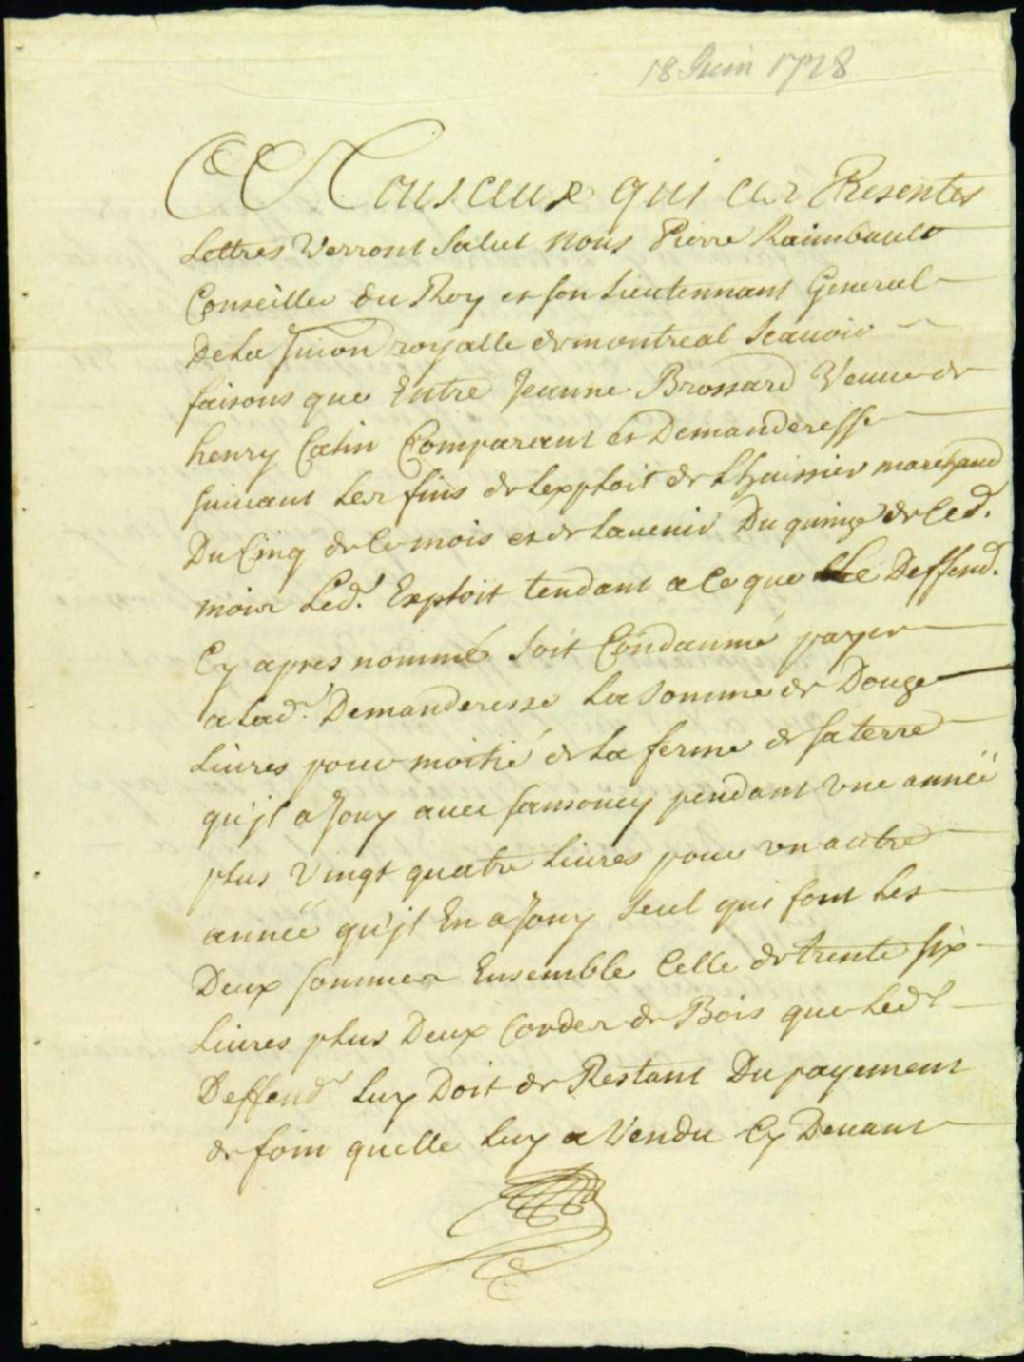 18 Juin 1728
A Tous ceux qui ces Presentes
Lettres Verront Salut Nous Pierre Raimbault
Conseiller du Roy et son Lieutennant General
De La Jurion royalle de montreal Scauoir
faisons que Entre Jeanne Brossard Veuue de
henry Catin Comparant et Demanderesse
suiuant Les fins de Lexploit de Lhuissier marchand
Du Cinq de Ce mois et de Lauenir Du quinze de Ced.
mois Led.t Exploit tendant a Ce que Le Deffend.
Cy apres nommé soit Condamné payer
a Lad.t Demanderesse La Somme de Douze
Liures pour moitié de La ferme de sa terre
qu'jl a Jouy auec pendant vne année
plus Vingt quatre Liures pour vn autre
année qu'jl En a Jouy Seul qui font Les
Deux sommes Ensemble Celle de trente six
Liures plus Deux Cordes de Bois que Led.t
Deffend.r Luy Doit de Restant Du payement
de foin quelle Luy a Vendu Cy Deuant